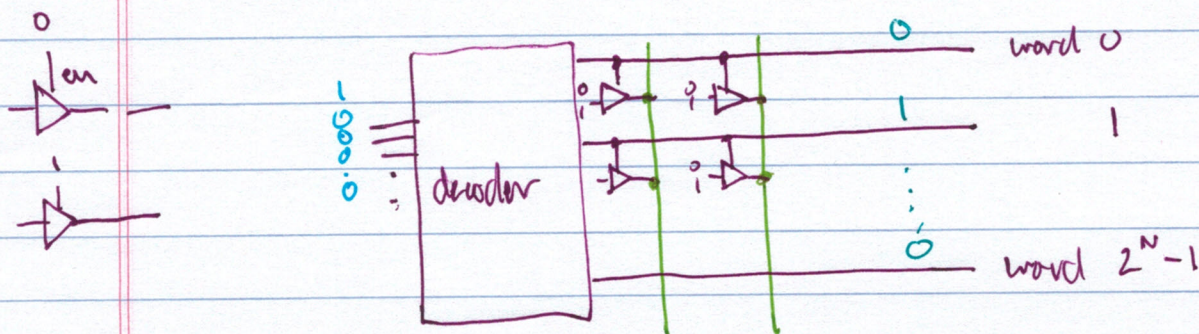 0
en
1
1
0
0
0
0
decoder
0
1
0
1
0
1
0
word 0
1
1
0
word 2^N-1